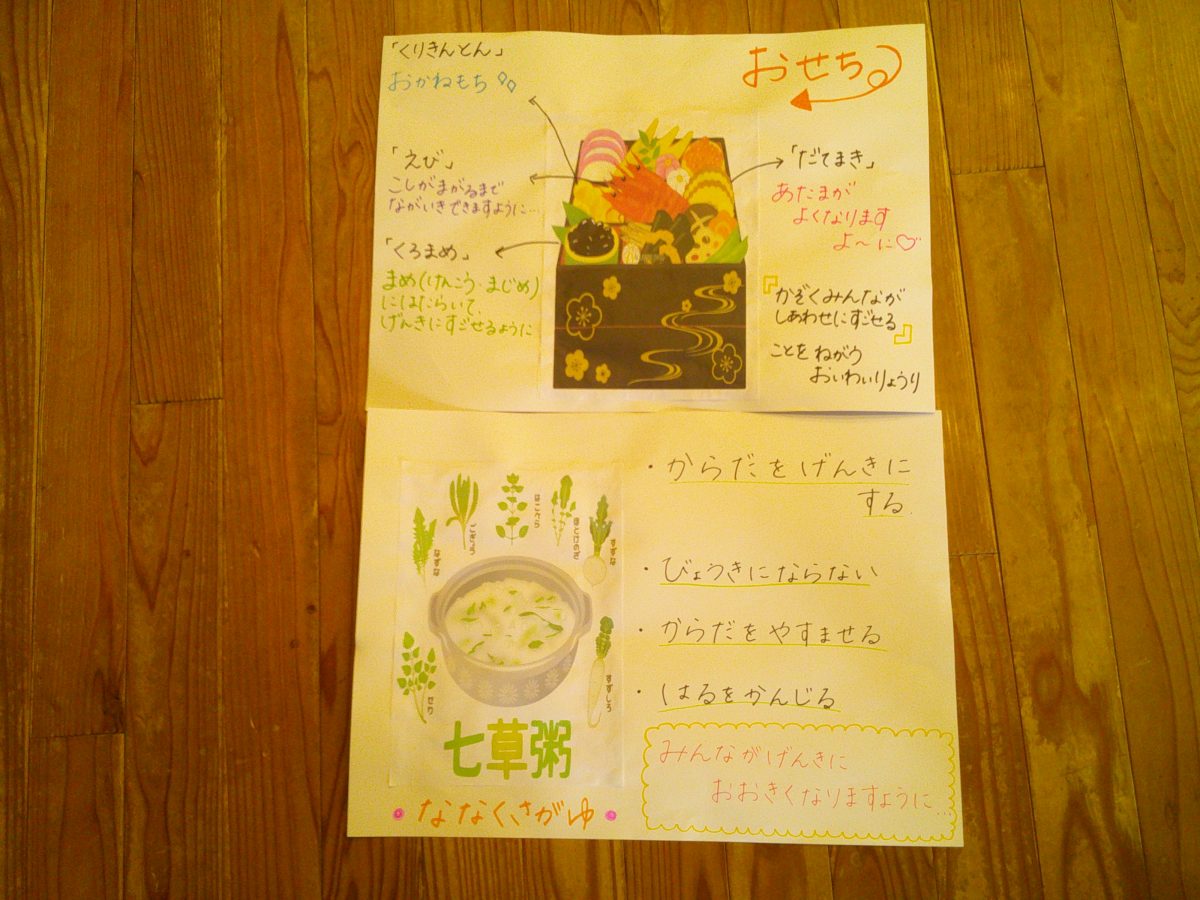 おせち
「くりきんとん」
おかねもち
「えび」
こしがまがるまで
ながいきできますように…
「くろまめ」
まめ(けんこう・まじめ)
にはたらいて、
げんきにすごせるように
「だてまき」
あたまが
よくなります
よ〜に♡
『かぞくみんなが
しあわせにすごせる』
ことをねがう
おいわいりょうり
なずな
ごぎょう
はこべら
ほとけのざ
すずな
すずしろ
せり
七草粥
ななくさがゆ
・からだをげんきに
する
・びょうきにならない
・からだをやすませる
・はるをかんじる
みんながげんきに
おおきくなりますように…